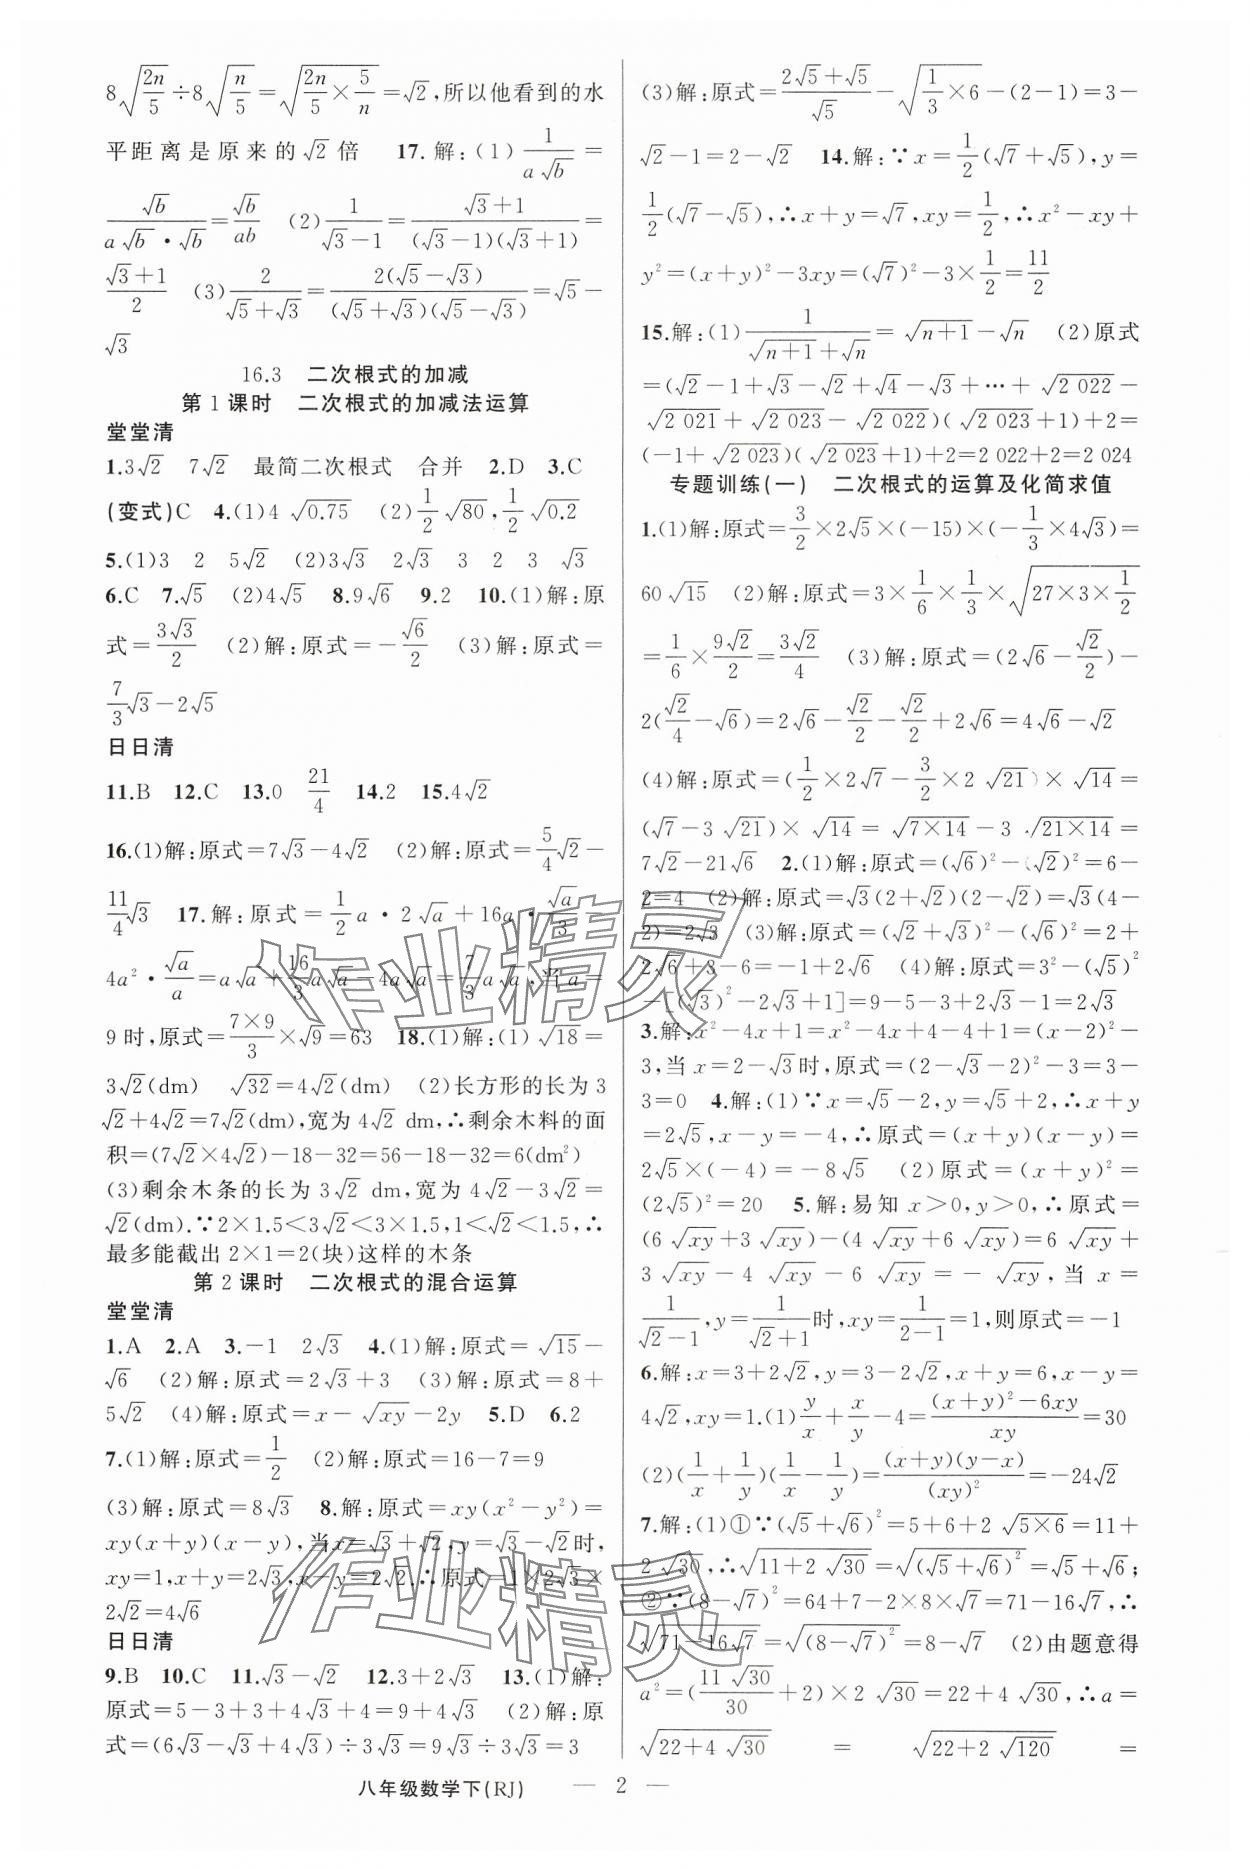 8√(2n/5)÷8√(n/5)=√(2n/5×5/n)=√2,所以他看到的水
平距离是原来的√2倍 17.解:(1)1/(a√b)=
√b/(a√b·√b)=√b/ab (2)1/(√3-1)=(√3+1)/((√3-1)(√3+1))=
(√3+1)/2 (3)2/(√5+√3)=2(√5-√3)/((√5+√3)(√5-√3))=√5-
√3
16.3 二次根式的加减
第1课时 二次根式的加减法运算
堂堂清
1.3√2 7√2 最简二次根式 合并 2.D 3.C
(变式)C 4.(1)4 √0.75 (2)1/2√80,1/2√0.2
5.(1)3 2 5√2 (2)3√3 2√3 3 2 3 √3
6.C 7.√5 (2)4√5 8.9√6 9.2 10.(1)解:原
式=3√3/2 (2)解:原式=-√6/2 (3)解:原式=
7/3√3-2√5
日日清
11.B 12.C 13.0 21/4 14.2 15.4√2
16.(1)解:原式=7√3-4√2 (2)解:原式=5/4√2-
11/4√3 17.解:原式=1/2a·2√a+16a·√a/3-
4a²·√a/a=a√a+16/3a√a-4a√a=7/3a√a,当a=
9时,原式=7×9/3×√9=63 18.(1)解:(1)√18=
3√2(dm) √32=4√2(dm) (2)长方形的长为3
√2+4√2=7√2(dm),宽为4√2 dm,∴剩余木料的面
积=(7√2×4√2)-18-32=56-18-32=6(dm²)
(3)剩余木条的长为3√2 dm,宽为4√2-3√2=
√2(dm).∵2×1.5<3√2<3×1.5,1<√2<1.5,∴
最多能截出2×1=2(块)这样的木条
第2课时 二次根式的混合运算
堂堂清
1.A 2.A 3.-1 2√3 4.(1)解:原式=√15-
√6 (2)解:原式=2√3+3 (3)解:原式=8+
5√2 (4)解:原式=x-√xy-2y 5.D 6.2
7.(1)解:原式=1/2 (2)解:原式=16-7=9
(3)解:原式=8√3 8.解:原式=xy(x²-y²)=
xy(x+y)(x-y),当x=√3+√2,y=√3-√2时,
xy=1,x+y=2√3,x-y=2√2.∴原式=1×2√3×
2√2=4√6
日日清
9.B 10.C 11.√3-√2 12.3+2√3 13.(1)解:
原式=5-3+3+4√3+4=9+4√3 (2)解:原
式=(6√3-√3+4√3)÷3√3=9√3÷3√3=3
(3)解:原式=(2√5+√5)/√5-√(1/3×6)-(2-1)=3-
√2-1=2-√2 14.解:∵x=1/2(√7+√5),y=
1/2(√7-√5),∴x+y=√7,xy=1/2,∴x²-xy+
y²=(x+y)²-3xy=(√7)²-3×1/2=11/2
15.解:(1)1/(√(n+1)+√n)=√(n+1)-√n (2)原式
=(√2-1+√3-√2+√4-√3+…+√2 022-
√2 021+√2 023-√2 022)(√2 023+1)+2=
(-1+√2 023)(√2 023+1)+2=2 022+2=2 024
专题训练(一) 二次根式的运算及化简求值
1.(1)解:原式=3/2×2√5×(-15)×(-1/3×4√3)=
60√15 (2)解:原式=3×1/6×1/3×√(27×3×1/2)
=1/6×9√2/2=3√2/4 (3)解:原式=(2√6-√2/2)-
2(√2/4-√6)=2√6-√2/2-√2/2+2√6=4√6-√2
(4)解:原式=(1/2×2√7-3/2×2√21)×√14=
(√7-3√21)×√14=√(7×14)-3√(21×14)=
7√2-21√6 2.(1)解:原式=(√6)²-(√2)²=6-
2=4 (2)解:原式=√3(2+√2)(2-√2)=√3(4-
2)=2√3 (3)解:原式=(√2+√3)²-(√6)²=2+
2√6+3-6=-1+2√6 (4)解:原式=3²-(√5)²
-[(√3)²-2√3+1]=9-5-3+2√3-1=2√3
3.解:x²-4x+1=x²-4x+4-4+1=(x-2)²-
3,当x=2-√3时,原式=(2-√3-2)²-3=3-
3=0 4.解:(1)∵x=√5-2,y=√5+2,∴x+y
=2√5,x-y=-4,∴原式=(x+y)(x-y)=
2√5×(-4)=-8√5 (2)原式=(x+y)²=
(2√5)²=20 5.解:易知x>0,y>0,∴原式=
(6√xy+3√xy)-(4√xy+6√xy)=6√xy+
3√xy-4√xy-6√xy=-√xy,当x=
1/(√2-1),y=1/(√2+1)时,xy=1/(2-1)=1,则原式=-1
6.解:x=3+2√2,y=3-2√2,x+y=6,x-y=
4√2,xy=1.(1)y/x+x/y-4=((x+y)²-6xy)/xy=30
(2)(1/x+1/y)(1/x-1/y)=(x+y)(y-x)/(xy)²=-24√2
7.解:(1)①∵(√5+√6)²=5+6+2√(5×6)=11+
2√30,∴√(11+2√30)=√((√5+√6)²)=√5+√6;
②∵(8-√7)²=64+7-2×8×√7=71-16√7,∴
√(71-16√7)=√((8-√7)²)=8-√7 (2)由题意得
a²=(11√30/30+2)×2√30=22+4√30,∴a=
√(22+4√30) = √(22+2√120) =
八年级数学下(RJ) — 2 —
作业精灵
作业精灵